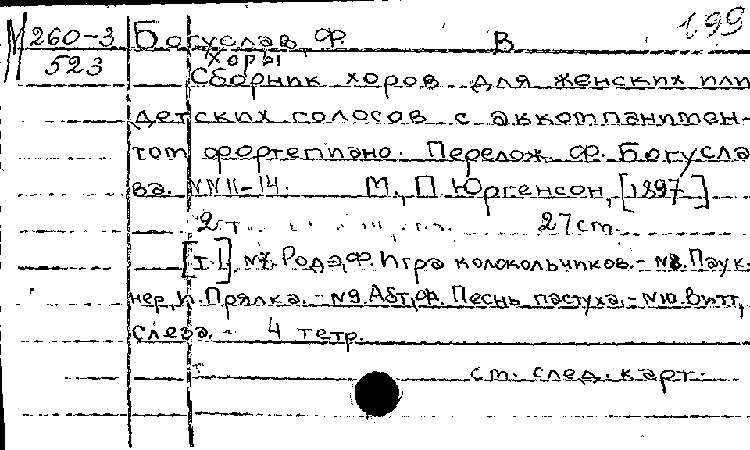 199
N 260-3 Богуслав, Ф. В
523 Хоры
Сборник хоров для женских или
детских голосов с аккомпанимен-
том фортепиано. Перелож. Ф. Богусла
ва. NN 11-14. М., П. Юргенсон, [1897]
2 т. 27 cm.
[I.] №7. Родэ, Ф. Игра колокольчиков. - №8. Паук-
нер, И. Прялка. - №9. Абт, Ф. Песнь пастуха. - №10. Витт,
Слеза. - 4 тетр.
см. след. карт.